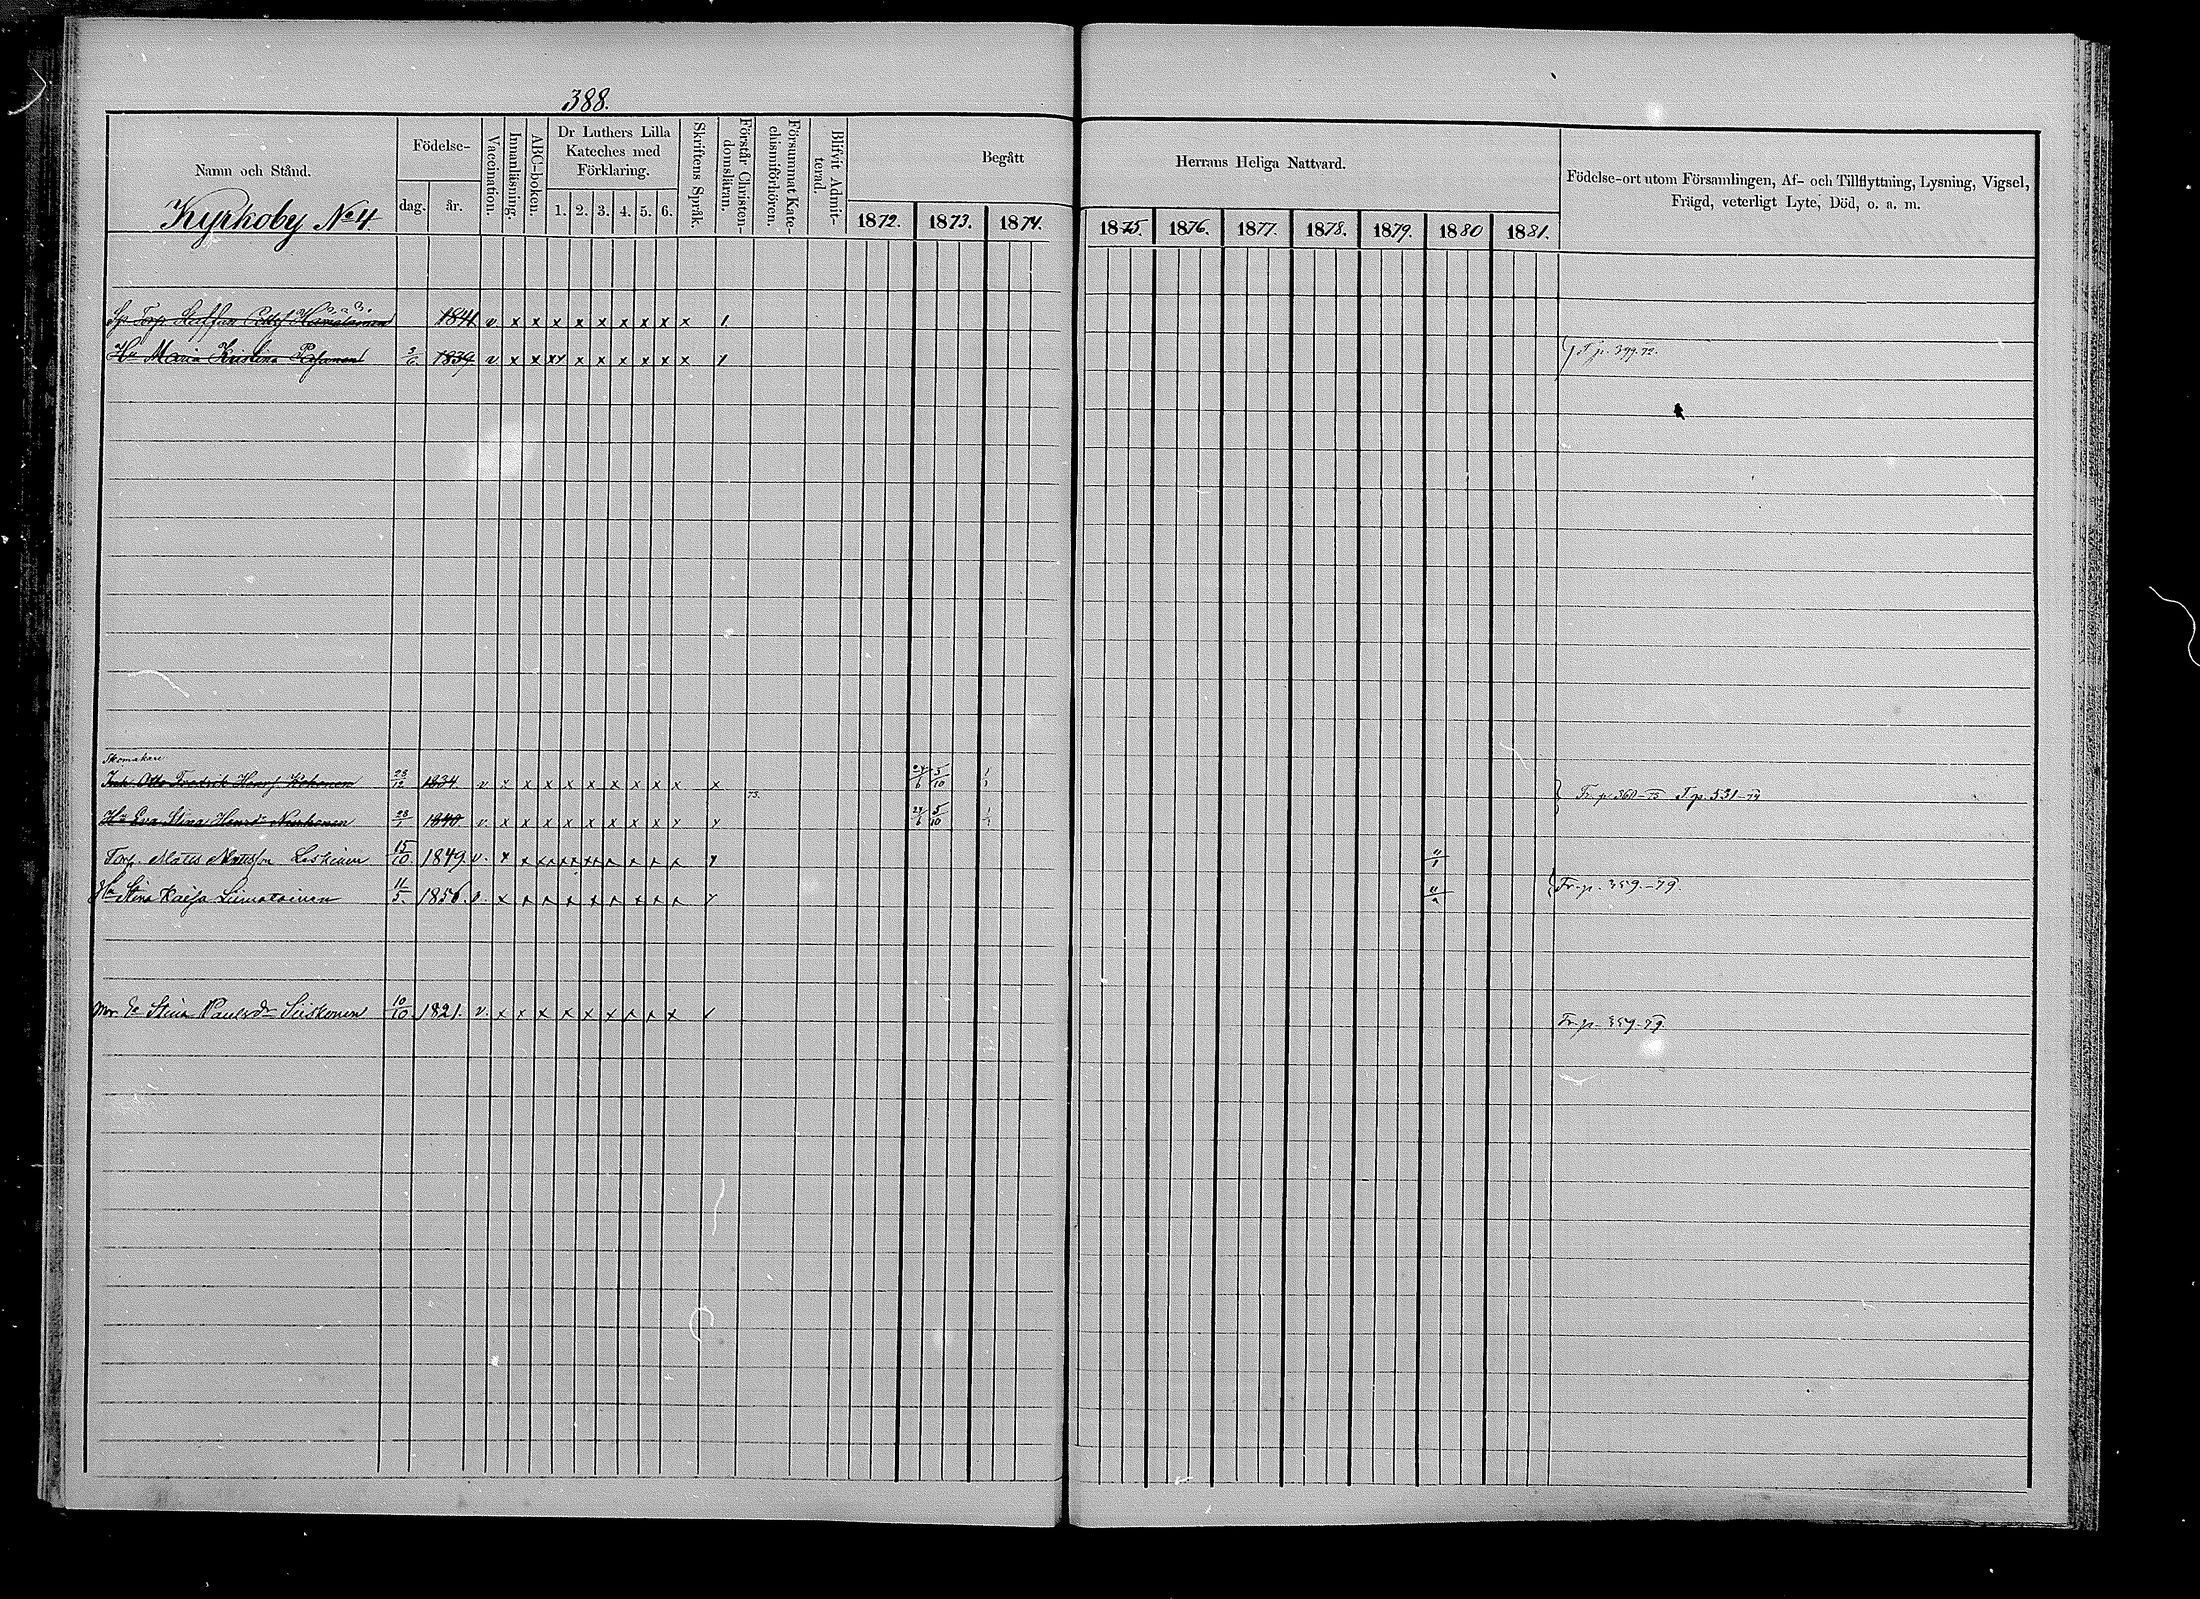 388.
Namn och Stånd.
Kyrkoby No 4.
Födelse-
dag. år.
Vaccination.
Innanläsning.
ABC-boken.
Dr Luthers Lilla
Kateches med
Förklaring.
1. 2. 3. 4. 5. 6.
Skriftens Språk.
Förstår Christen-
domsläran.
Försummat Kate-
chismiförhören.
Blifvit Admit-
terad.
Begått
Herrans Heliga Nattvard.
1872. 1873. 1874. 1875. 1876. 1877. 1878. 1879. 1880 1881.
Födelse-ort utom Församlingen, Af- och Tillflyttning, Lysning, Vigsel,
Frägd, veterligt Lyte, Död, o. a. m.
Torp. Staffan 1841 v x x x x x x x x x 1
Hu Maria Kristina 3/6 1839 v x x xx x x x x x x 1 T. p. 399.72.
Skomakare
Inh. Otto Fredrik Henr. Kokonen 28/12 1834. v. x x x x x x x x x x 24/6 5/10 Fr. p 360-73 T. p. 531-74
73.
Hu Eva Stina Henrsdr 28/1 1840 v. x x x x x x x x x x 24/6 5/10
Torp. Matts Mattsson Leskinen 15/10 1849. v. x x
Hu Stina Kaisa Liimatainen 11/5. 1856. v. x x Fr. p. 359.-79.
Stina Paulsdr Siiskonen 10/10 1821. v. x x x x x x x x x Fr. p. 359-79.